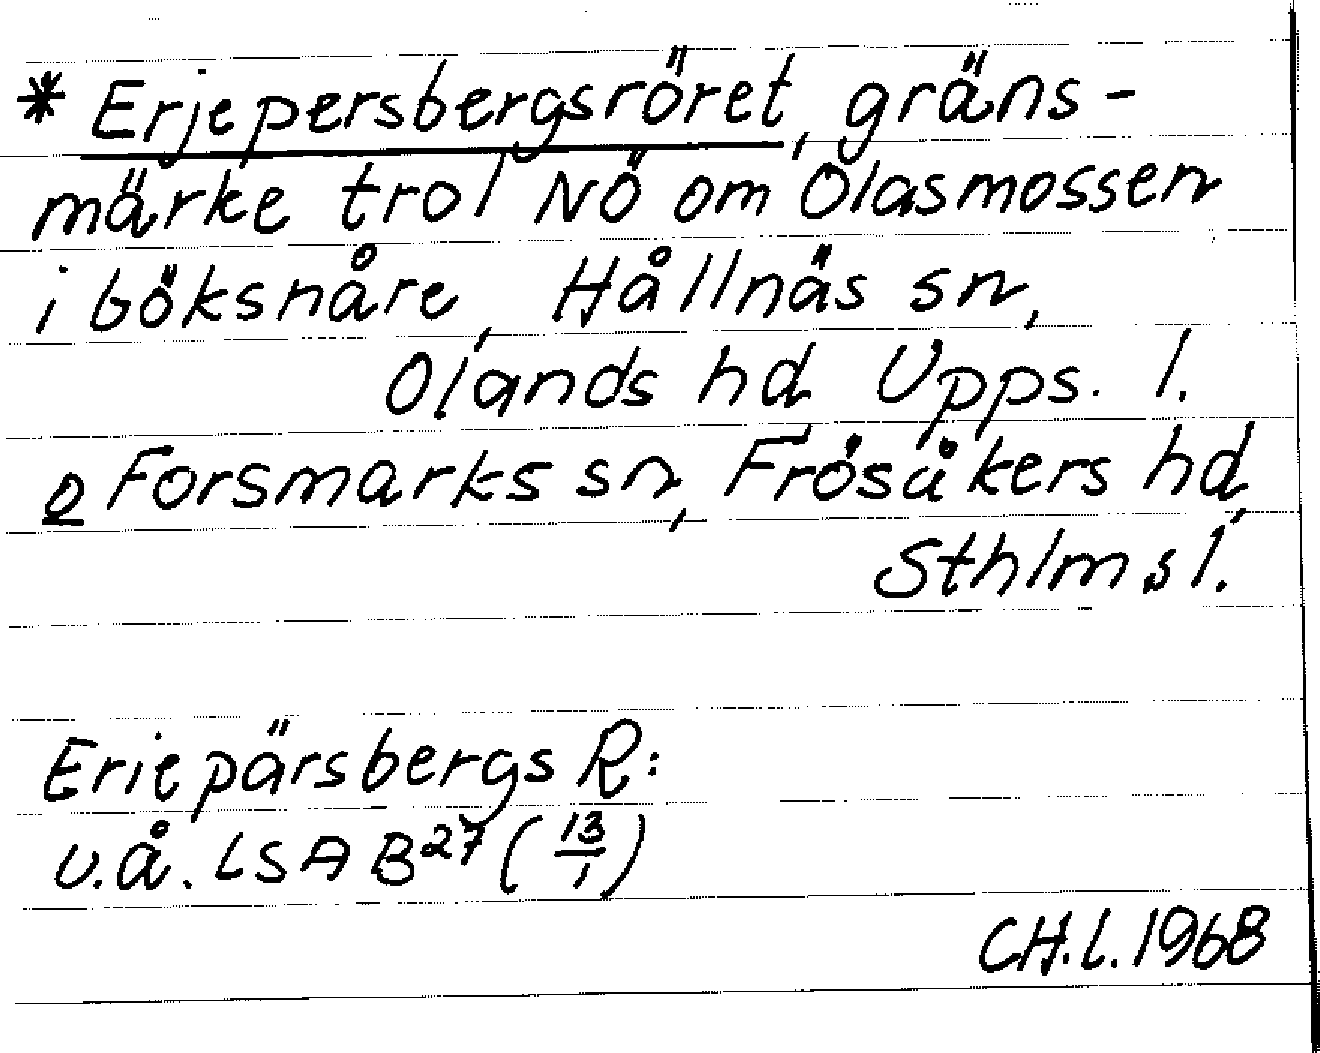 * Erjepersbergsröret, gräns-
märke trol NÖ om Olasmossen
i Böksnåre, Hållnäs sn,
Olands hd Upps. l.
o Forsmarks sn, Frösåkers hd,
Sthlms l.
Eriepärsbergs R:
u.å. LSA B27 (13/1)
CH.L. 1968